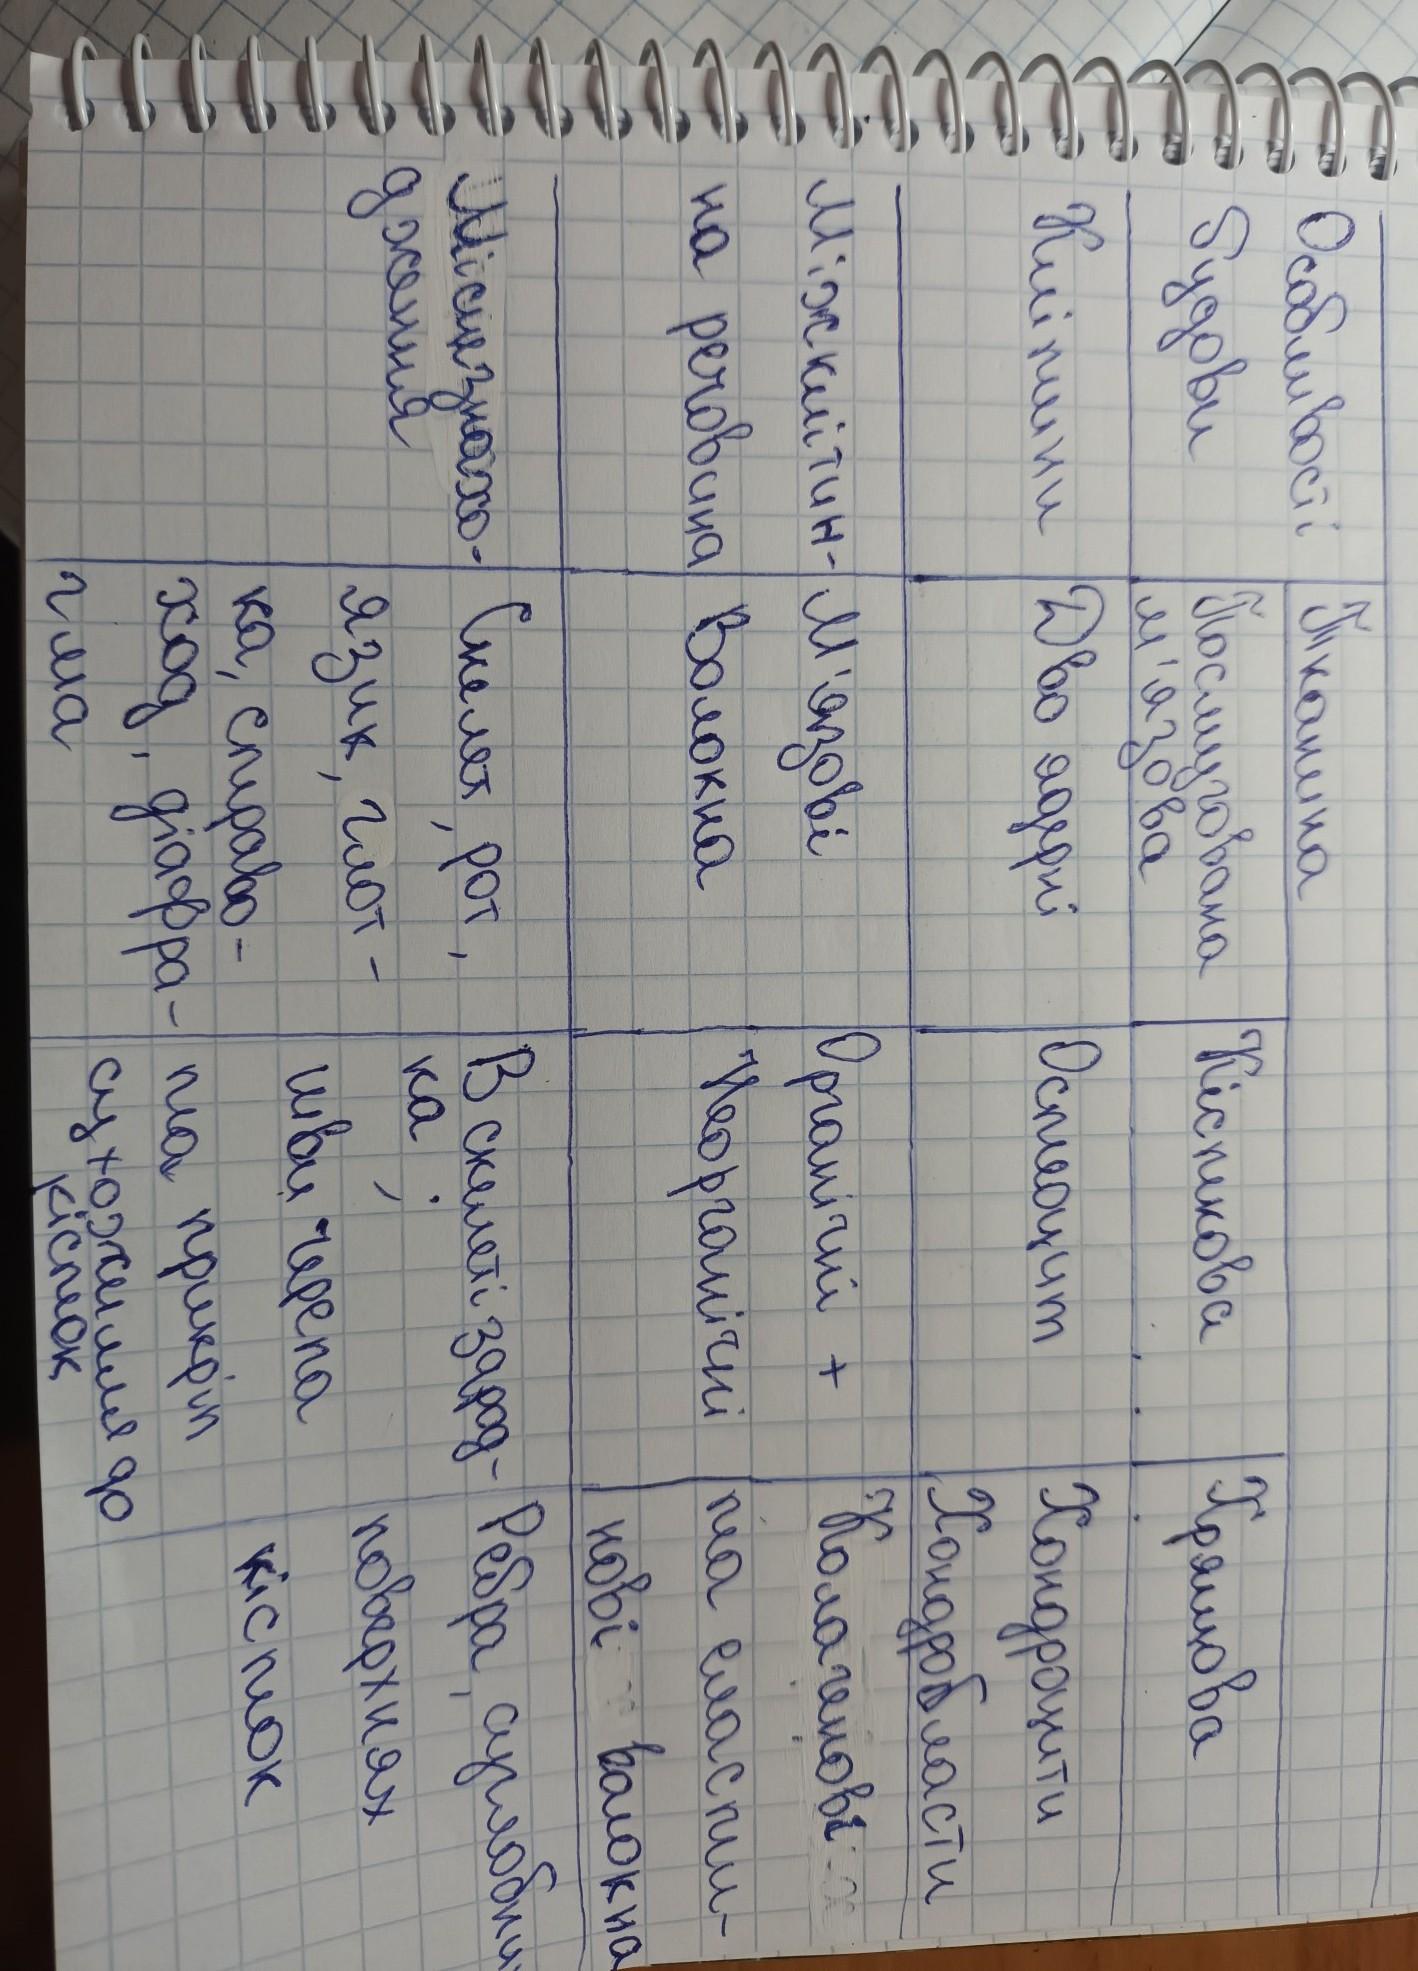 Особливості
будови
Тканина
Посмугована
м'язова
Кісткова
Хрящова
Клітини
Двоядерні
Остеоцит
Хондроцити
Хондробласти
Міжклітин-
на речовина
М'язові
Волокна
Органічні +
Неорганічні
Колагенові
та еласти-
нові волокна
Місцезнахо-
дження
Скелет, рот,
язик, глот-
ка, страво-
хід, діафра-
гма
В скелеті зарод-
ка;
шви черепа
та прикріп
сухожилля до
кісток
Ребра, суглобних
поверхнях
кісток